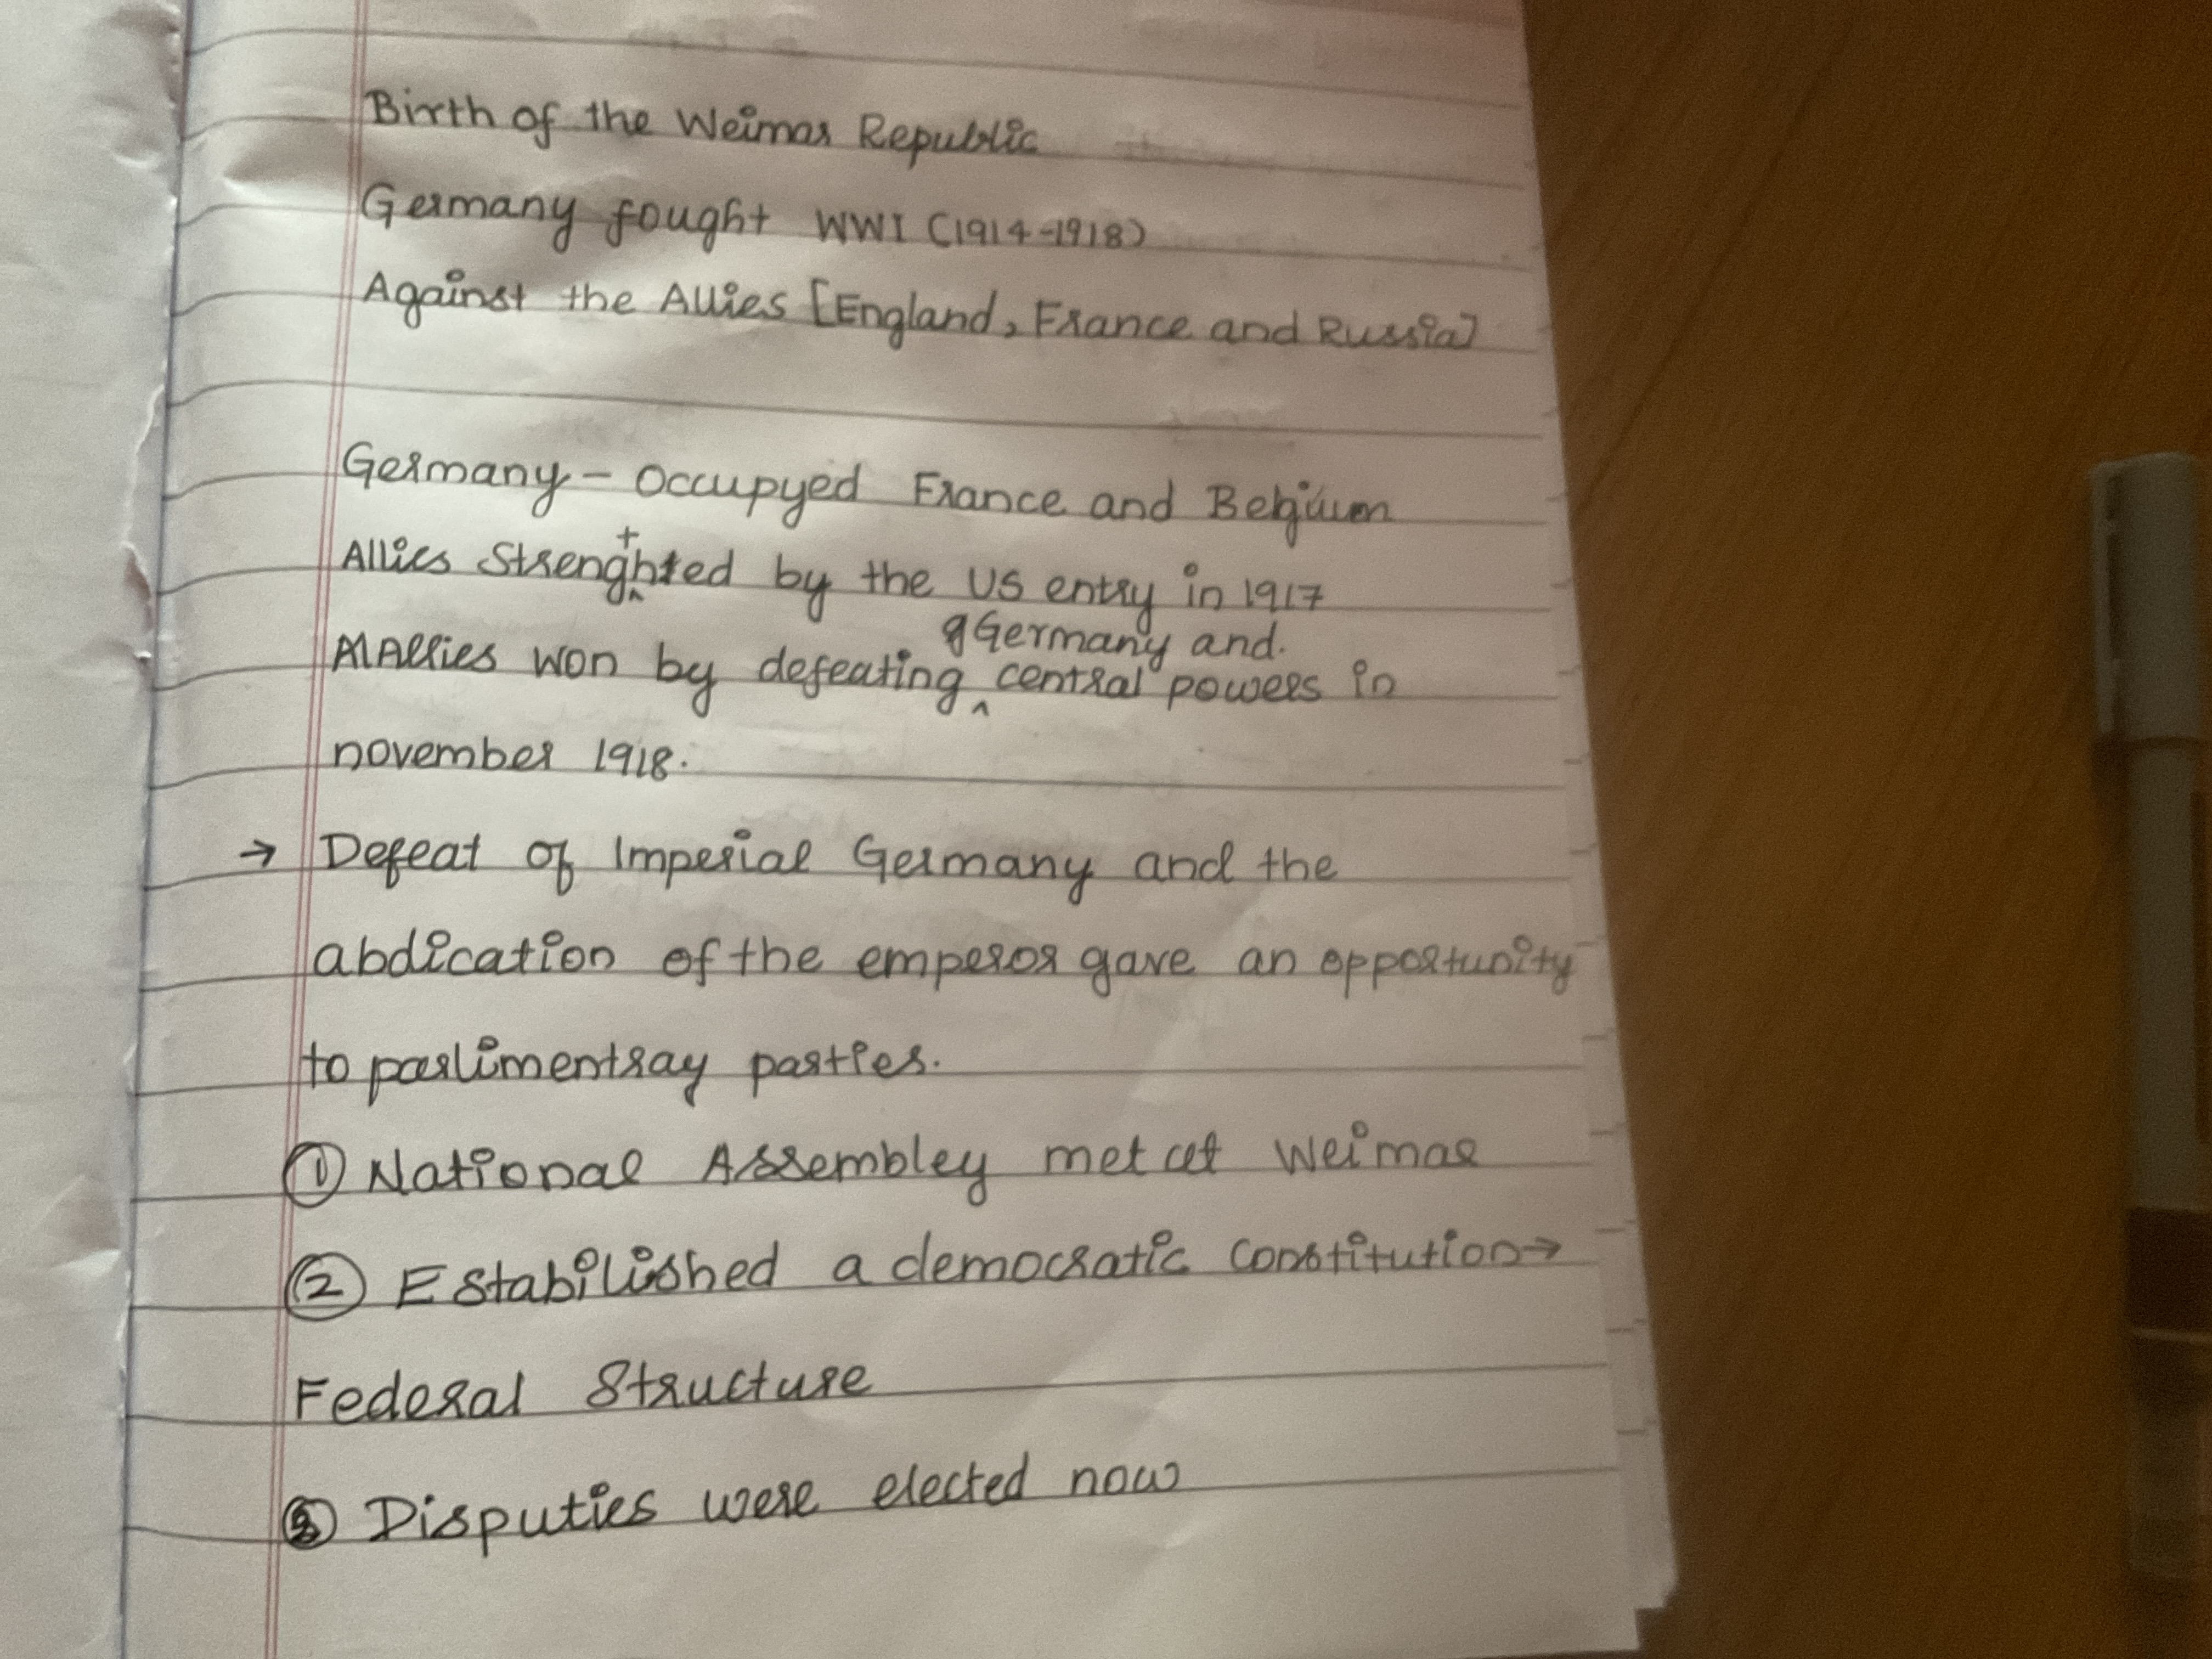 Birth of the Weimar Republic
Germany fought WWI (1914-1918)
Against the Allies [England, France and Russia]
Germany - Occupyed France and Belgium
Allies Strengthted by the US entry in 1917
Allies won by defeating Germany and central powers in
november 1918.
→ Defeat of Imperial Germany and the
abdication of the emperor gave an opportunity
to parlimentray parties.
① National Assembley met at Weimar
② Estabilished a democratic constitution→
Federal Structure
③ Disputies were elected now